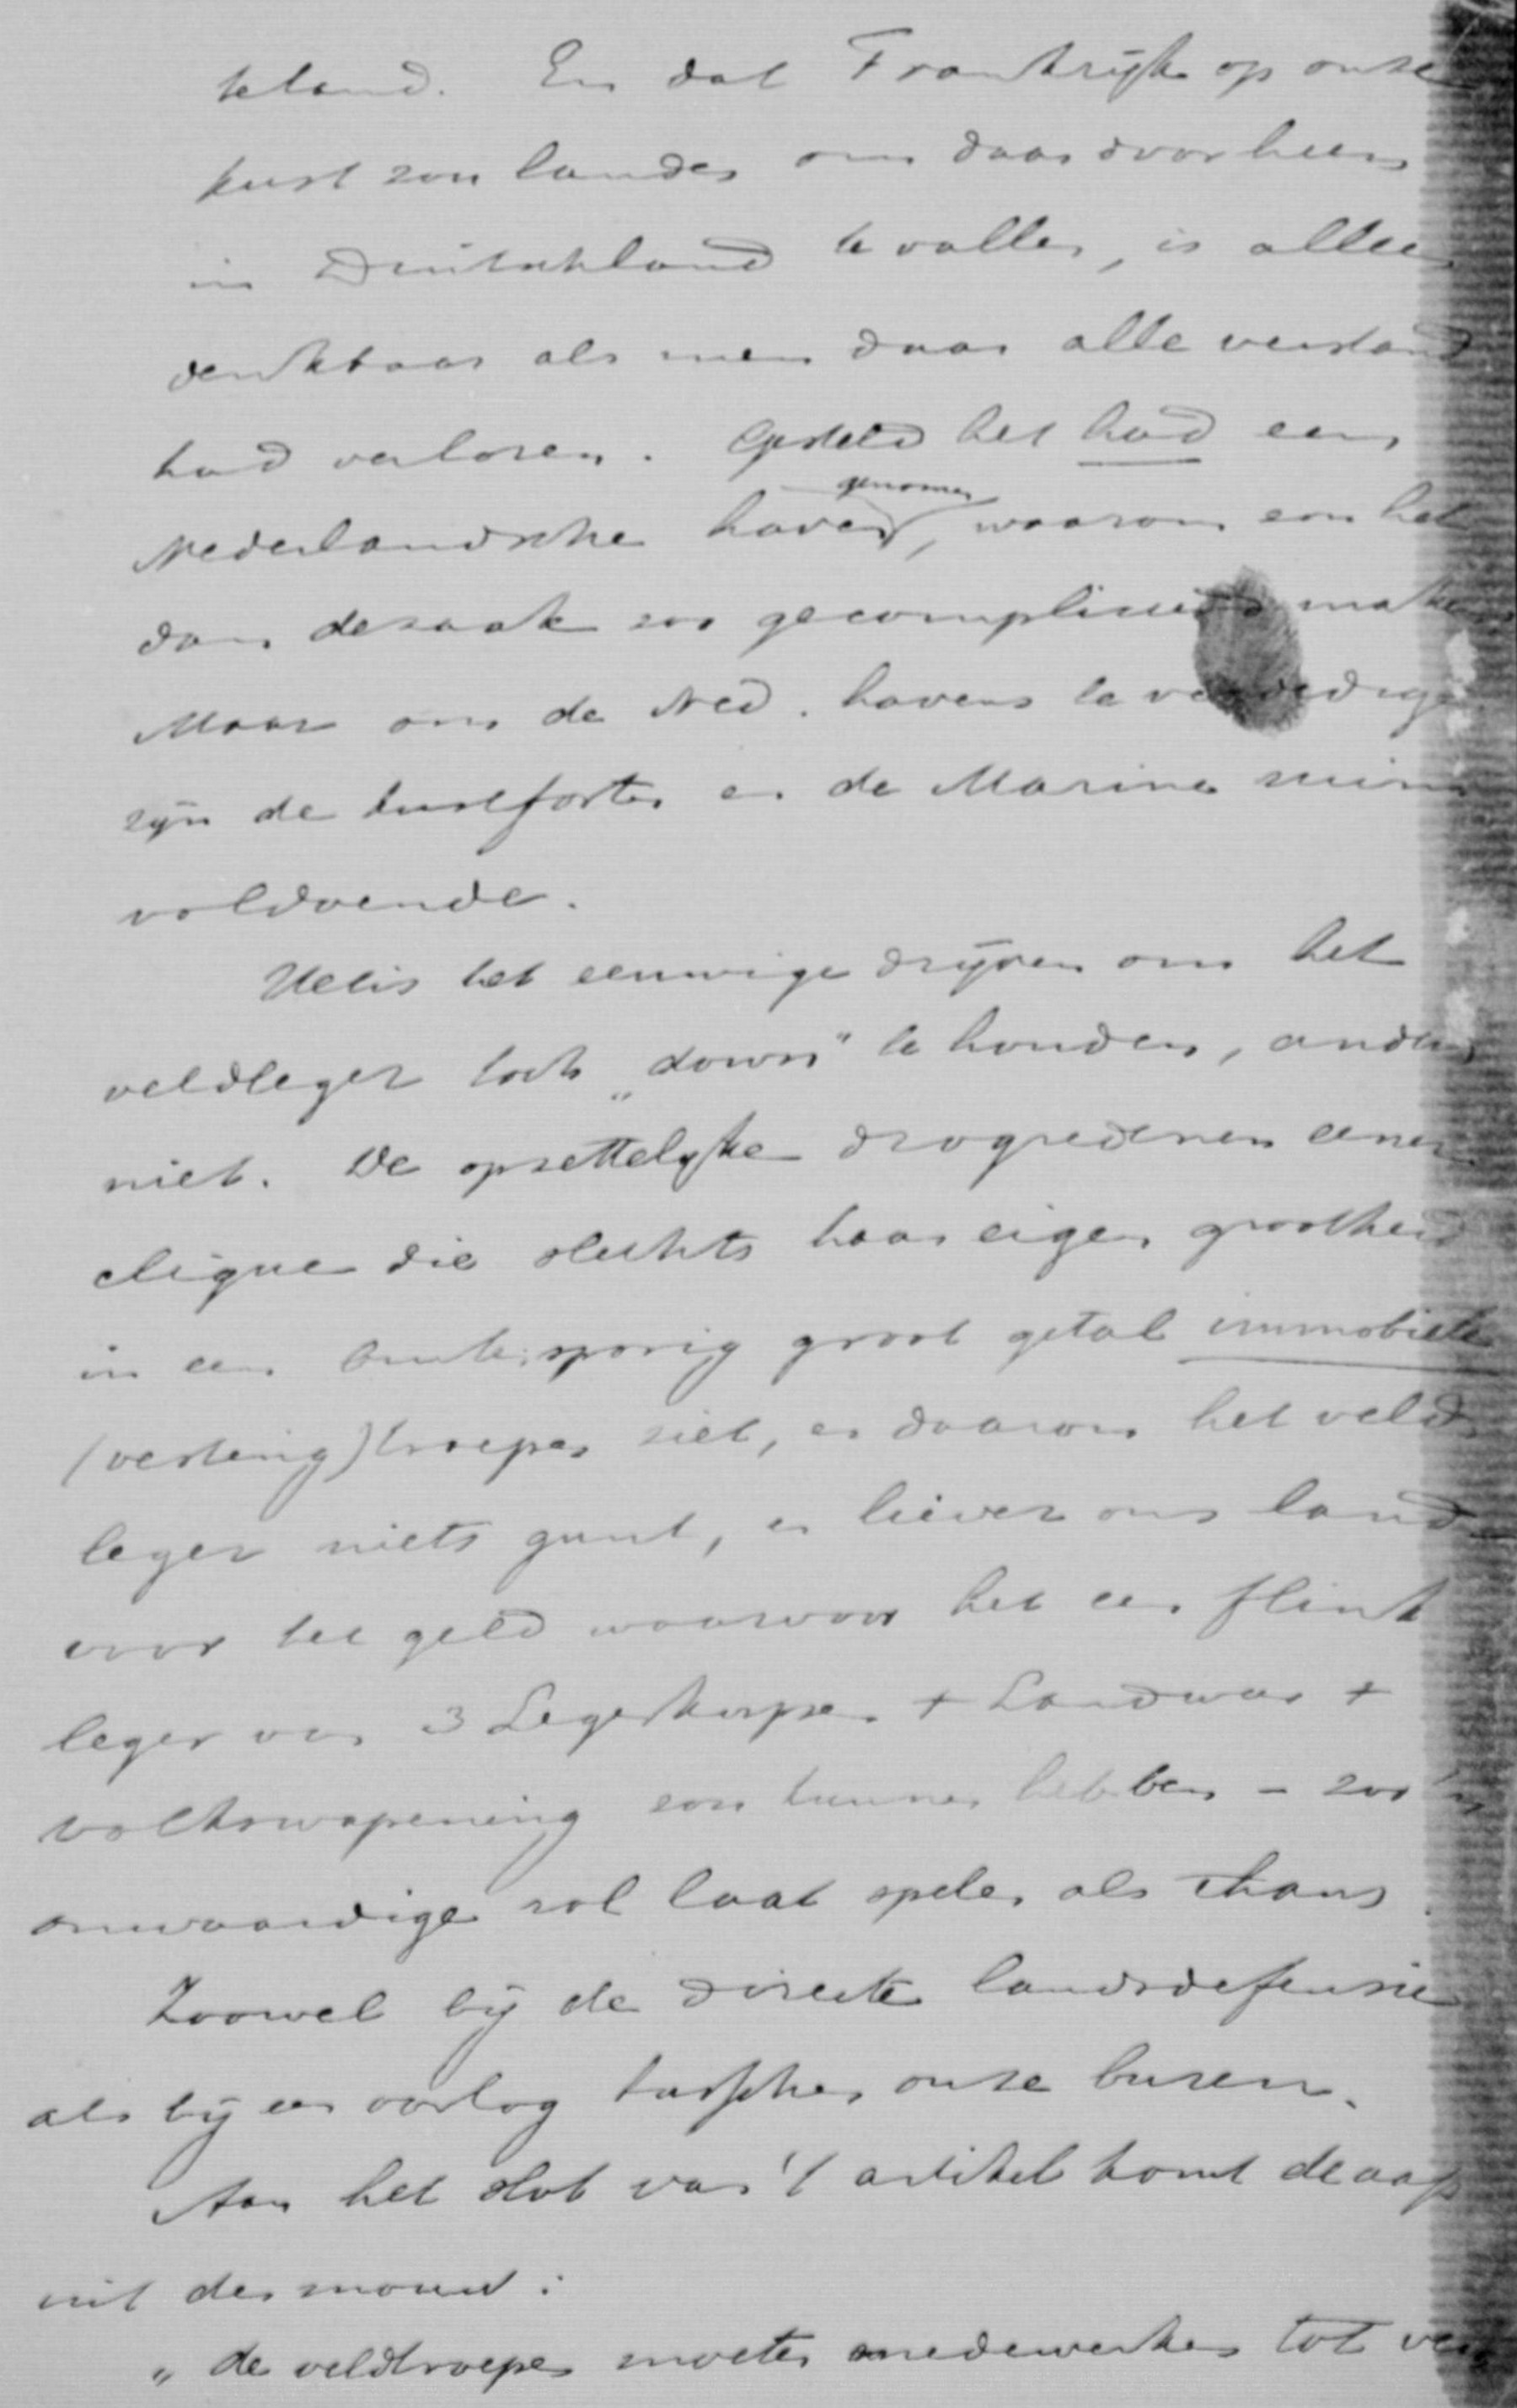 teland. En dat Frankrijk op onze
kust zou landen om daar door heen
in Duitschland te vallen, is alleen
denkbaar als men daar alle verstand
had verloren. Gesteld het had een
Nederlandsche haven genomen, waarom zou het
dan de zaak zoo gecompliceerd maken
Maar om de Ned. havens te verdedigen
zijn de kustforten en de Marine ruim
voldoende.
Het is het eeuwige drijven om het
veldleger toch „down" te houden, anders
niet. De opzettelijke drogredenen eener
clique die slechts haar eigen grootheid
in een buitensporig groot getal immobiele
(vesting)troepen ziet, en daarom het veld
leger niets gunt, en liever ons land
voor het geld waarvoor het een flink
leger van 3 Legerkorpsen + Landweer +
volkswapening zou kunnen hebben - zoo'n
onwaardige rol laat spelen als thans.
Zoowel bij de directe landsdefensie
als bij een oorlog tusschen onze buren.
Aan het slot van 't artikel komt de aap
uit de mouw:
„de veldtroepen moeten medewerken tot